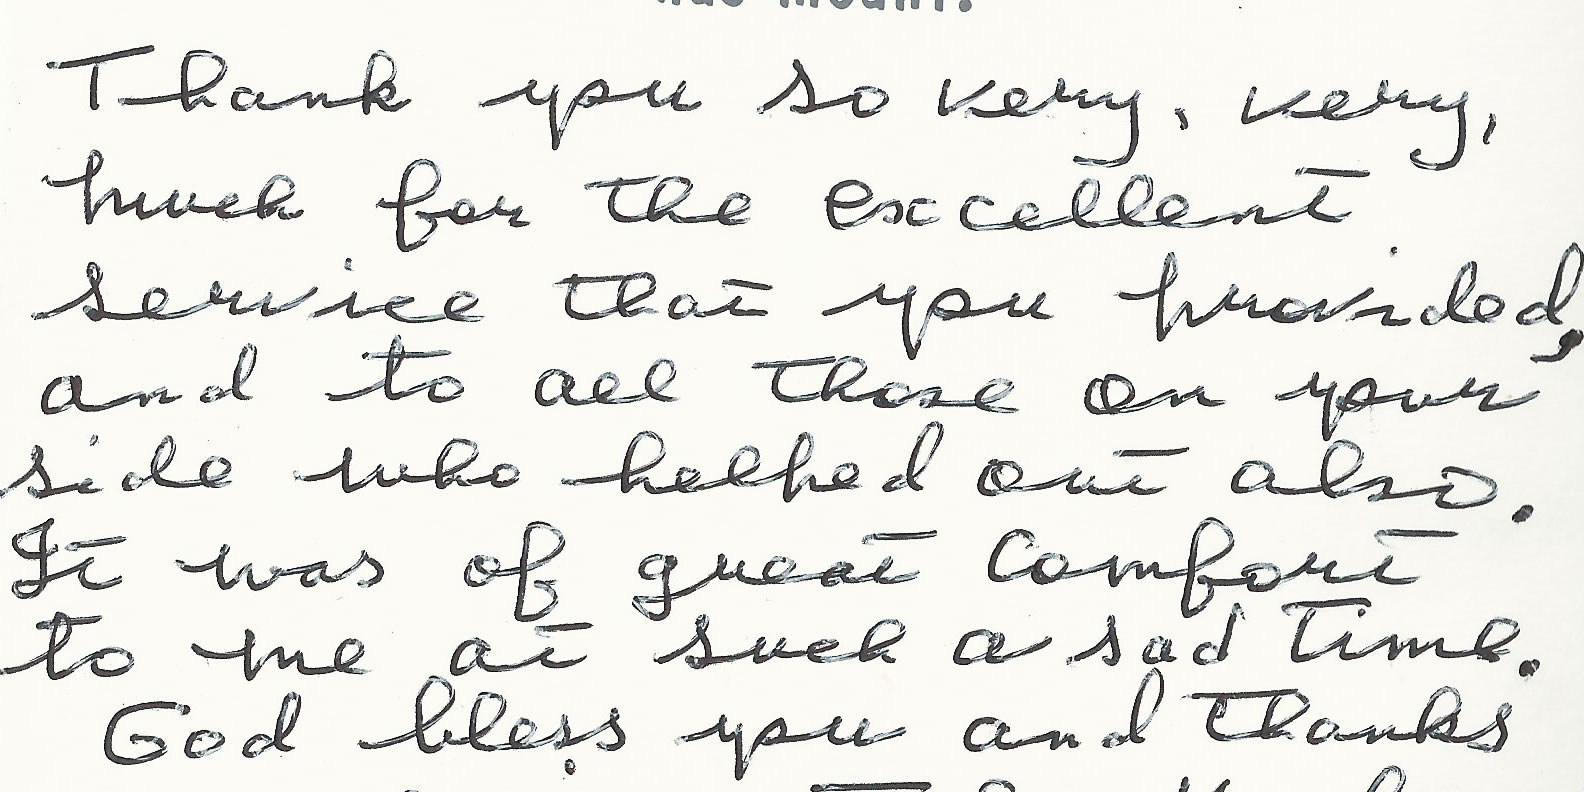 Thank you so very, very,
much for the excellent
service that you provided,
and to all those on your
side who helped out also.
It was of great comfort
to me at such a sad time.
God bless you and thanks